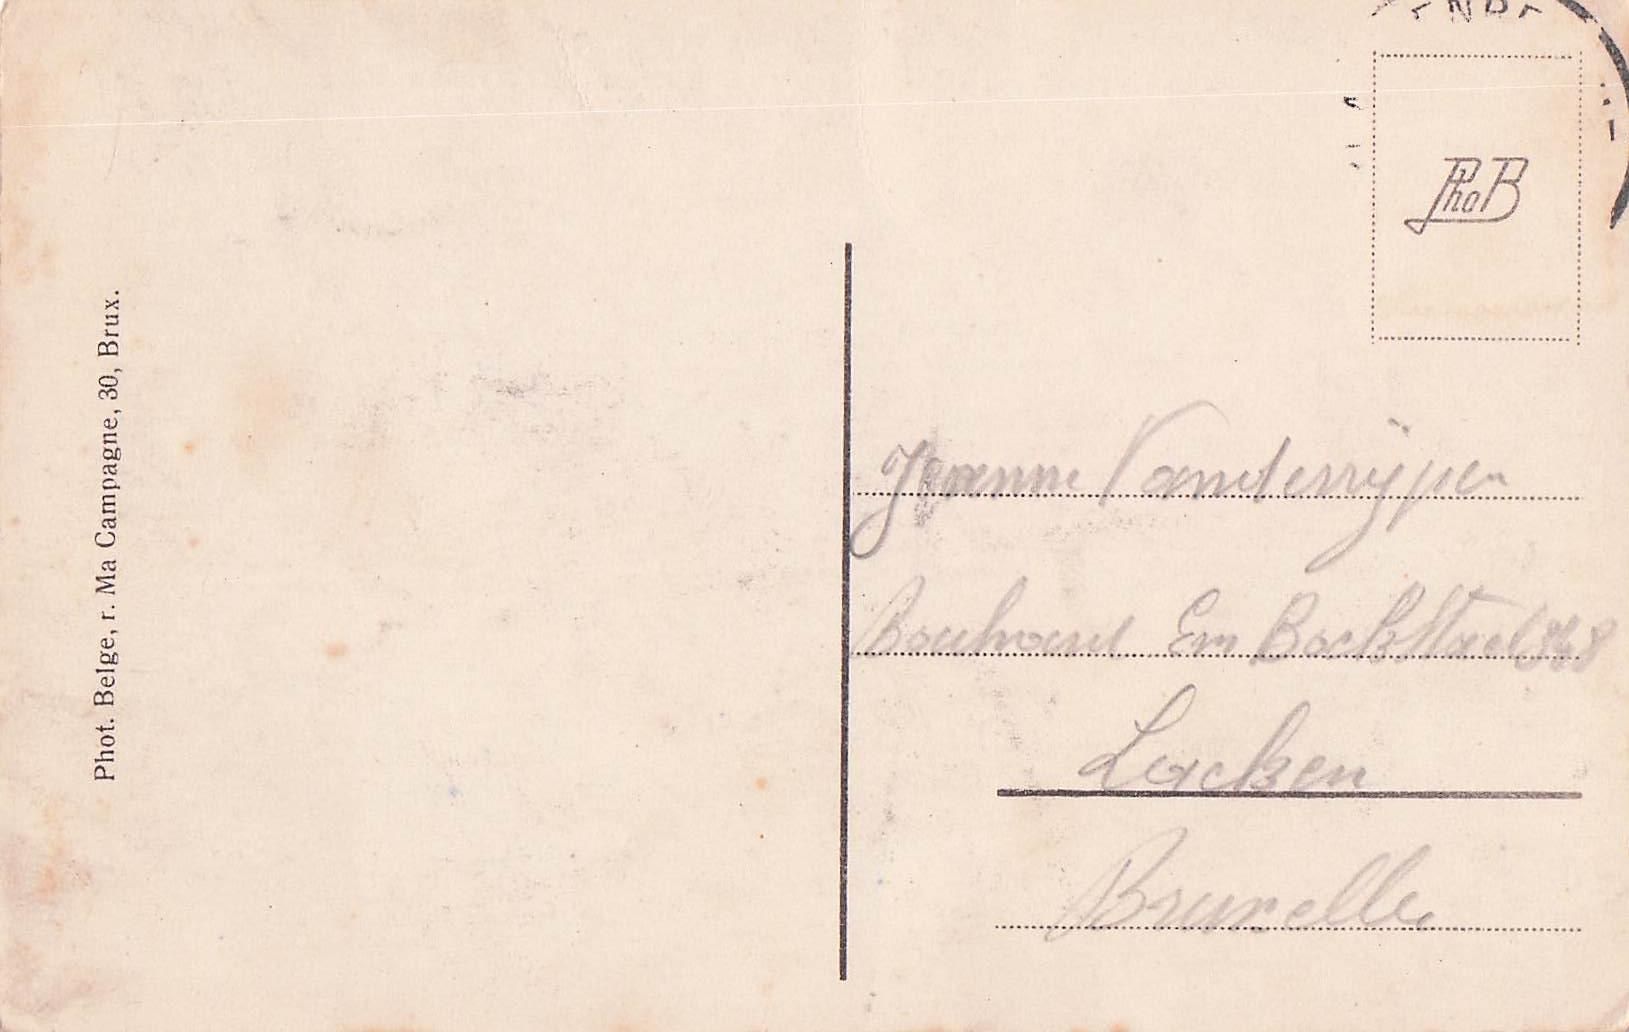 PhoB
Phot. Belge, r. Ma Campagne, 30, Brux.
Jeanne Vanderrÿpen
Boulvard Em Bockstael
Lacken
Bruxelles